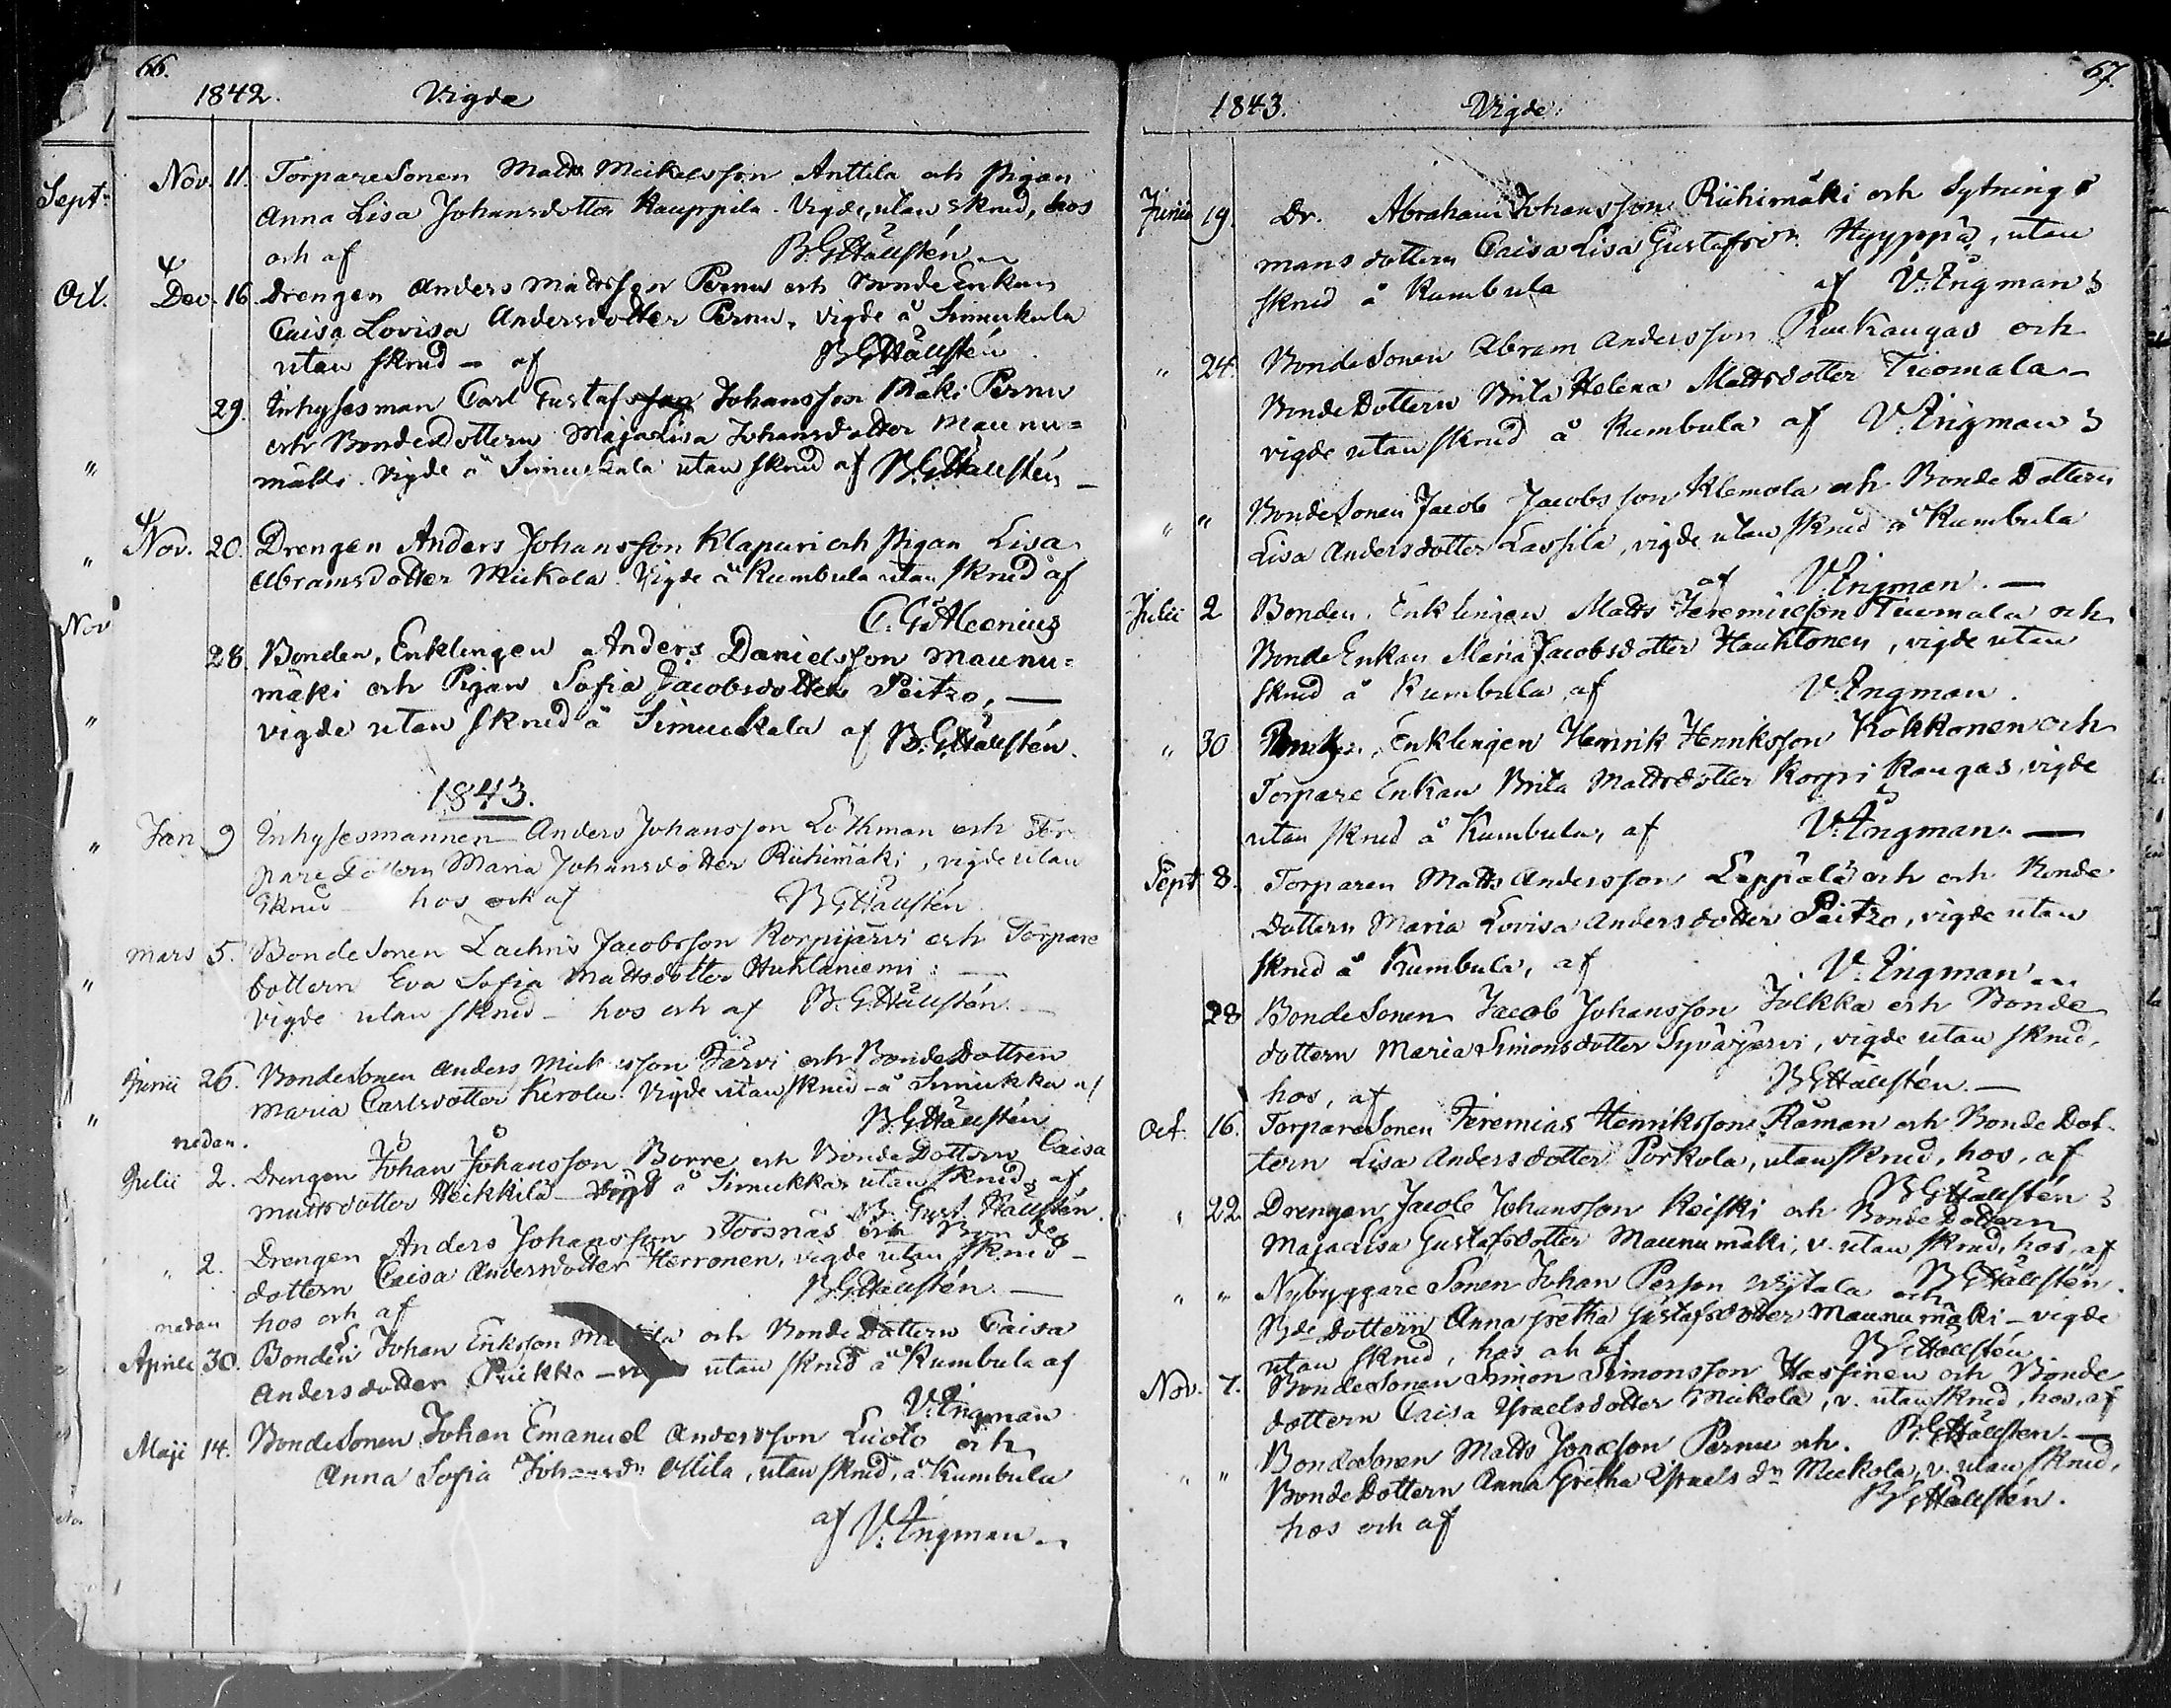 66.
1842. Vigde
Nov. 11. TorpareSonen Matts Meikelsson Anttila och Pigan
Anna Lisa Johansdotter Kauppila. Vigde, utan skrud, hos
och af B. G. Hällstén
Dec. 16. Drengen Anders Mattsson Pernu och BondeEnkan
Caisa Lovisa Andersdotter Pernu, vigde å Simuskala
utan skrud – af B. G. Hällstén
29. Inhysesman Carl Gustaf Johansson Mäki Pernu
och BondeDottern Maja Lisa Johansdotter Maunu=
mäki. Vigde å Simuskala utan skrud af B. G. Hällstén –
Nov. 20. Drengen Anders Johansson Klapuri och Pigan Lisa
Abramsdotter Mickola. Vigde å Kumbula utan skrud af
C. G. Alcenius
28. Bonden, Enklingen Anders Danielsson Maunu=
mäki och Pigan Sofia Jacobsdotter Peitzo, —
vigde utan skrud å Simuskala af B. G. Hällstén.
1843.
Jan 9 Inhysesmannen Anders Johansson Löthman och Tor-
pareDottern Maria Johansdotter Riihimäki, vigde utan
skrud hos och af B. G. Hällstén
Mars 5. BondeSonen Zachris Jacobsson Korpijärvi och Torpare
dottern Eva Sofia Mattsdotter Huhtaniemi: —
Vigde utan skrud – hos och af B. G. Hällstén.
Junii 26. Bondesonen Anders Mickelsson Järvi och BondeDottren
Maria Carlsdotter Kerola. Vigde utan skrud – å Simukka af
B. G. Hällstén
nedan.
Julii 2. Drengen Johan Johansson Borre och BondeDottern Caisa
Mattsdotter Heikkilä – å Simukka, utan skrud, af
B. Gust. Hällstén.
" 2. Drengen Anders Johansson Forsnäs och Bonde
dottern Caisa Andersdotter Herronen, vigde utan skrud –
hos och af B. G. Hällstén. —
nedan
Aprill 30. Bonden Johan Eriksson och BondeDottern Caisa
Andersdotter Puikko – utan skrud å Kumbula af
V. Engman
Maji 14. BondeSonen Johan Emanuel Andersson Luoto och
Anna Sofia Johansdr Ollila, utan skrud, å Kumbula
af V. Engman
Sept.
Oct.
"
"
Nov
"
"
"
"
67.
1843. Vigde.
Junii 19. Dr. Abraham Johansson Riihimäki och Sytnings
mans dottern Caisa Lisa Gustafsdr. Hyyppä, utan
skrud å Kumbula af V. Engman
" 24. BondeSonen Abram Andersson Ruukangas och
BondeDottern Brita Helena Mattsdotter Tuomala –
vigde utan skrud å Kumbula af V. Engman
" " BondeSonen Jacob Jacobsson Klemola och BondeDottern
Lisa Andersdotter Lassila, vigde utan skrud å Kumbula
af V. Engman. —
Julii 2 Bonden, Enklingen Matts Jeremiesson Tuomala och
BondeEnkan Maria Jacobsdotter Hauhtonen, vigde utan
skrud å Kumbula, af V. Engman.
" 30 Enklingen Henrik Henriksson Kokkonen och
TorpareEnkan Brita Mattsdotter Korpi Kangas, vigde
utan skrud å Kumbula, af V. Engman. —
Sept 8. Torparen Matts Andersson Leppälä och och Bonde
Dottern Maria Lovisa Andersdotter Peitzo, vigde utan
skrud å Kumbula, af V. Engman
28 BondeSonen Jacob Johansson Jolkka och Bonde
dottern Maria Simonsdotter Syväjärvi, vigde utan skrud,
hos, af B. G. Hällstén. —
Oct. 16. TorpareSonen Jeremias Henriksson Råman och BondeDot-
tern Lisa Andersdotter Porkola, utan skrud, hos, af
B. G. Hällstén
" 22 Drengen Jacob Johansson Keiski och BondeDottern
Maja Lisa Gustafsdotter Maunumäki, v. utan skrud, hos, af
B. G. Hällstén.
" " Nybyggare Sonen Johan Persson och
Bde Dottern Anna Gretha Gustafsdotter Maunumäki – vigde
utan skrud, hos och af B. G. Hällstén
Nov. 7. BondeSonen Simon Simonsson Hassinen och Bonde
dottern Caisa Israelsdotter Mickola, v. utan skrud, hos, af
B. G. Hällstén. —
" " BondeSonen Matts Jonesson Pernu och
BondeDottern Anna Gretha Israels dr Mickola, v. utan skrud,
hos och af B. G. Hällstén.